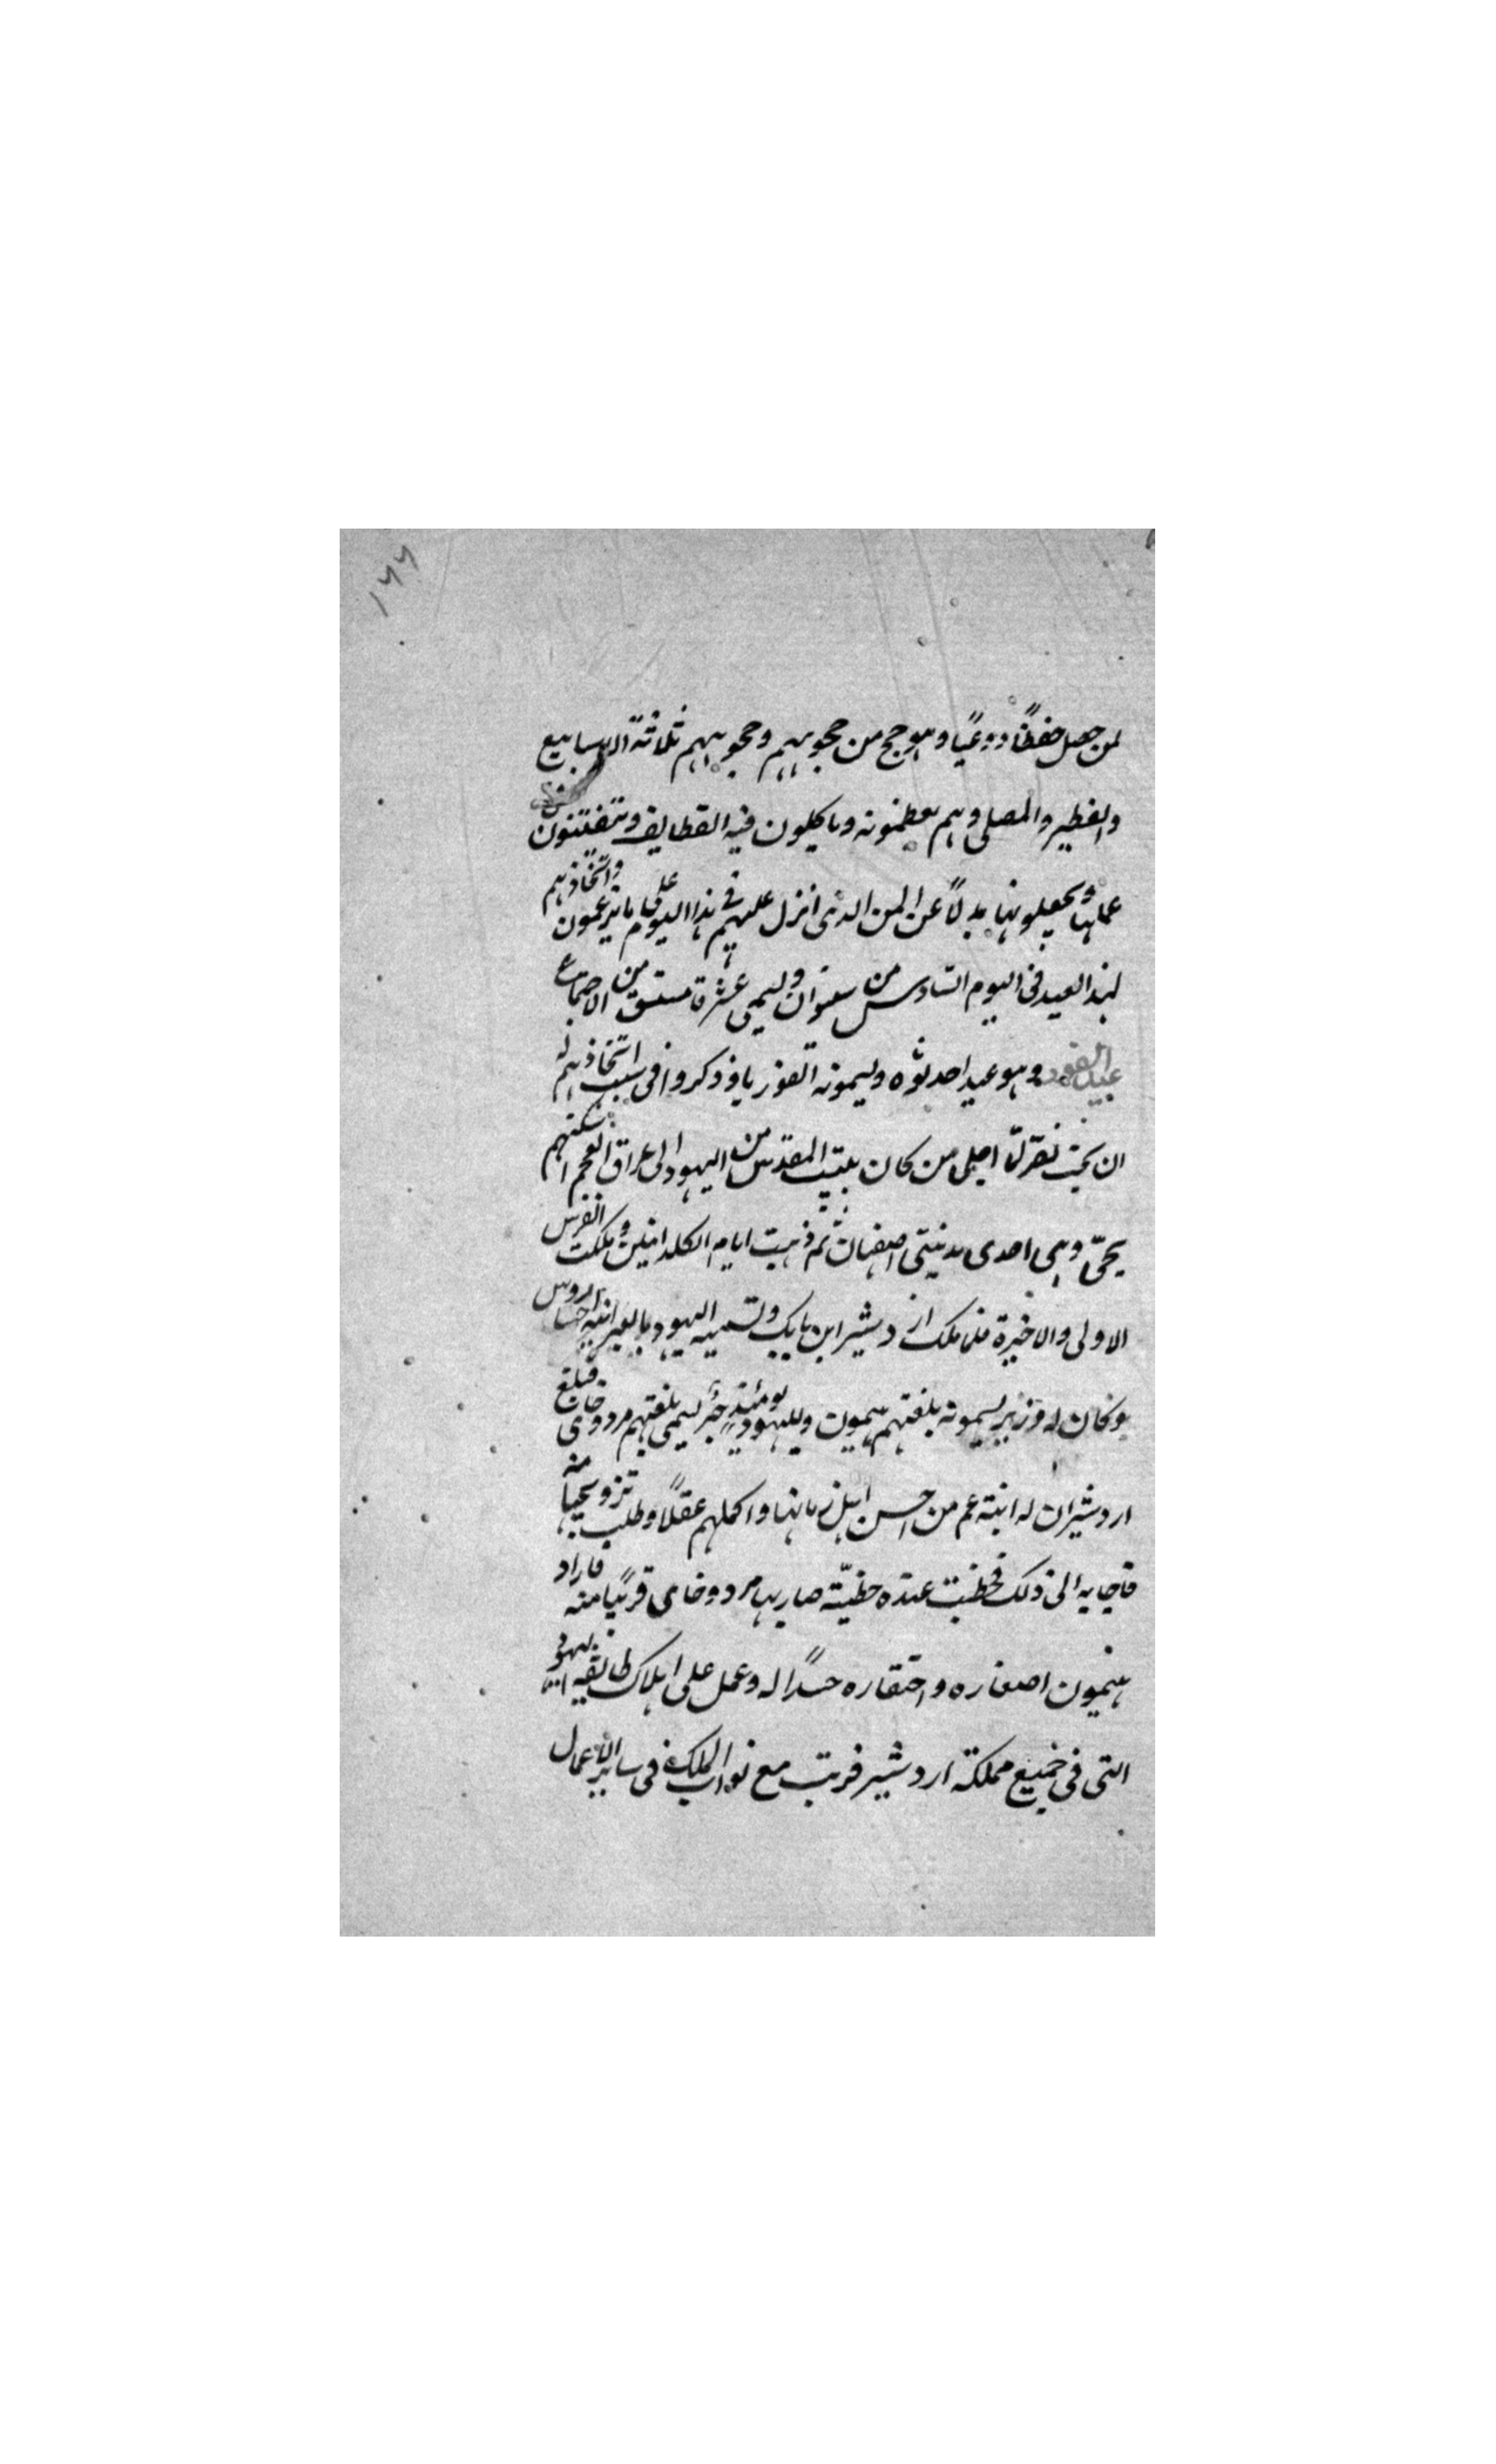 ١٧٧
لمن حصل حفظا ووعيا وهو حج من حجوبهم وحجوبهم ثلاثة الاسابيع
والفطير والمصلى وهم يعظمونه وياكلون فيه القطايف ويتفننون
عملها ويجعلونها بدلاً عن المن الذى انزل عليهم في هذا اليوم على ما يزعمون واتخاذهم
لهذا العيد فى اليوم السادس من سفوان ويسمى عشرة مشتق من الاجتماع
عيد الفوز وهو عيد احدثوه ويسمونه الفوريا وذكروا فى سبب اتخاذهم له
ان بخت نصر لما اجلى من كان ببيت المقدس من اليهود الى عراق العجم اسكنهم
بحىّ وهى احدى مدينتى اصفهان ثم ذهبت ايام الكلدانيين وملكت الفرس
الاولى والاخيرة فلما ملك ازدشير ابن بابك وتسميه اليهود بالعبرانيه
وكان له وزير يسمونه بلغتهم هيمون ولليهود يومئذ حبر يسمى بلغتهم مردوخاى فبلغ
اردشير ان له ابنة عم من احسن اهل زمانها واكملهم عقلاً وطلب تزويجها منه
فاجابه الى ذلك فحظيت عنده حظيّة صار بها مردوخاى قريبًا منه فاراد
هيمون اصغاره واحتقاره حسدًا له وعمل على اهلاك طائفة اليهود
التى فى جميع مملكة اردشير فرتب مع نواب الملك فى ساير الاعمال